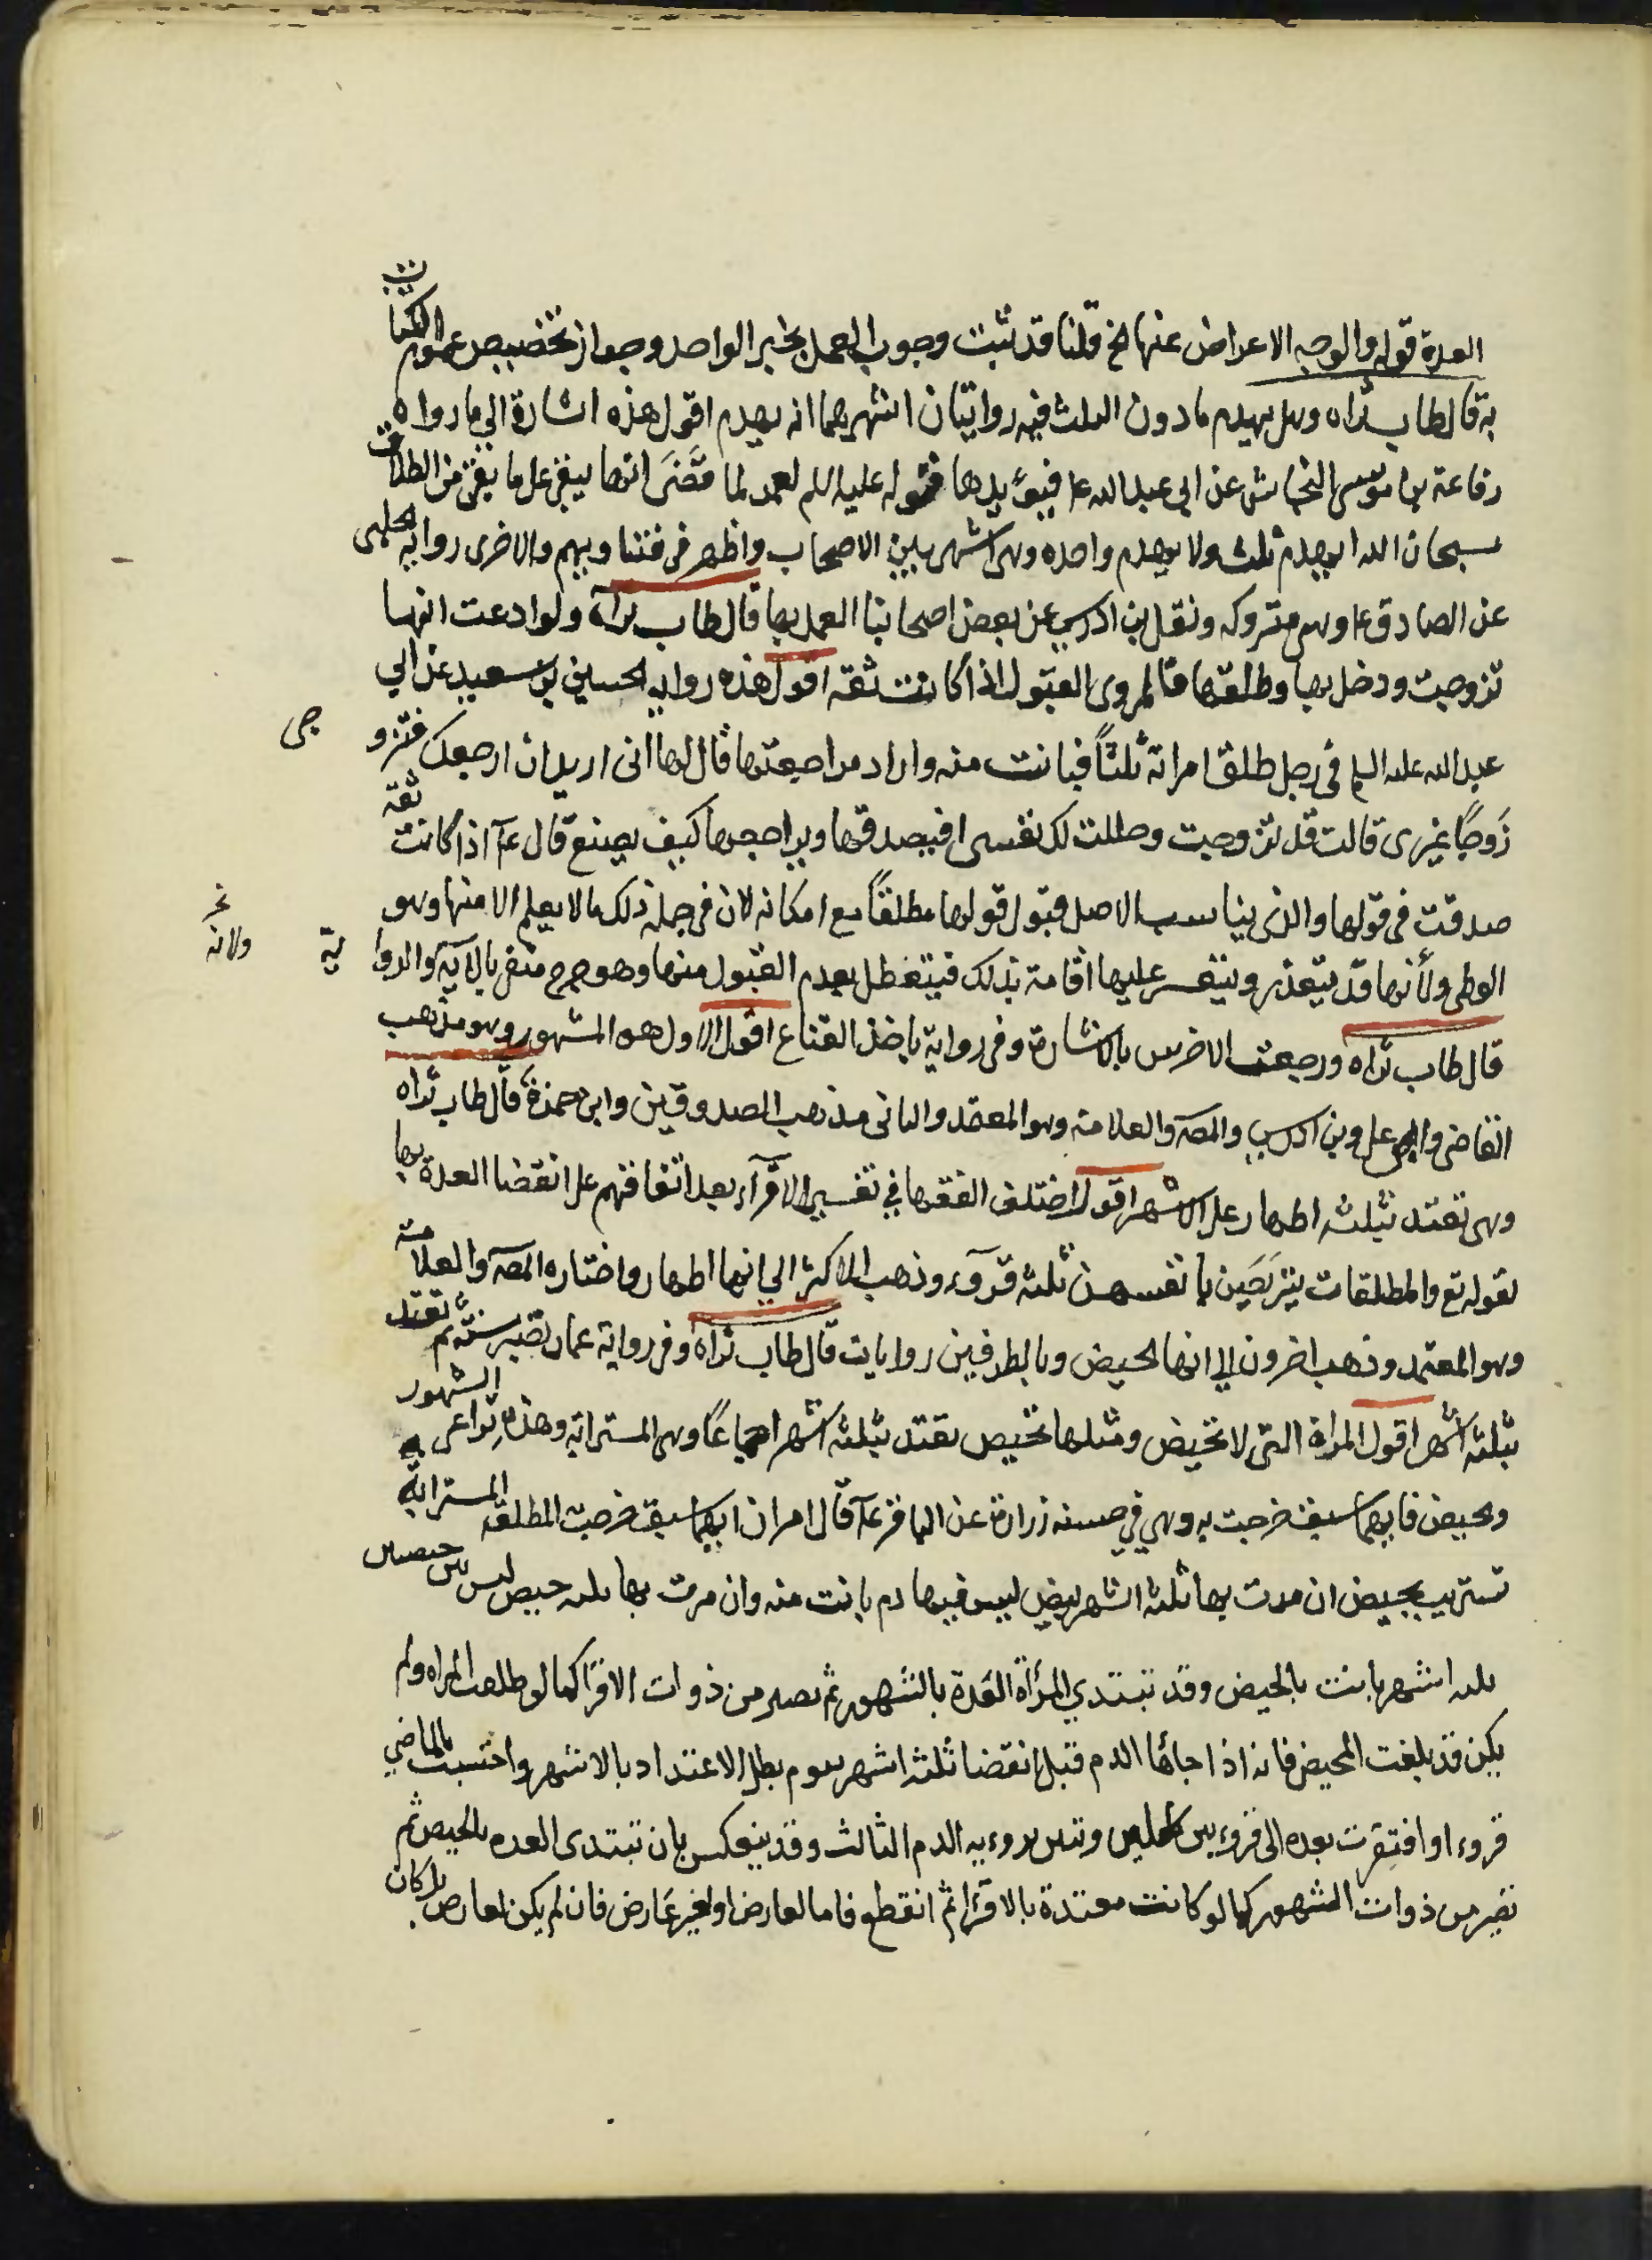 العدة قوله والوجه الاعراض عنها مخ قلنا قد ثبت وجوب العمل بخبر الواحد وجواز تخصيص عموم الكتاب
به قال طاب ثراه وهل يهدم ما دون الثلث فيه روايتان اشهرهما انه يهدم اقول هذه اشارة الي ما رواه
رفاعة بن موسى النخاس عن ابي عبد الله ع قوله عليه السلم لعمر لما قضى انها يبقى على ما بقى من الطلاق
سبحان الله ايهدم ثلث ولا يهدم واحده وهى اشهر بين الاصحاب واظهر فى فتناويهم والاخرى رواية الحلبى
عن الصادق ع وهى متروكه ونقل بن ادريس عن بعض اصحابنا العمل بها قال طاب ثراه ولو ادعت انها
تزوجت ودخل بها وطلقها فالمروى القبول اذا كانت ثقه اقول هذه روايه الحسين بن سعيد عن ابي
عبد الله عليه السلم في رجل طلق امراته ثلثاً فبانت منه واراد مراجعتها قال لها انى اريد ان ارجعك فتزو جى
زوجًا غيرى قالت قد تزوجت وحللت لك نفسى افيصدقها ويراجعها كيف يصنع قال ع اذا كانت ثقة
صدقت فى قولها والذى يناسب الاصل قبول قولها مطلقاً مع امكانه لان فى جملة ذلك ما لا يعلم الا منها وهو
الوطى ولأنها قد يتعذر ويتعسر عليها اقامة بذلك فيتعطل بعدم القبول منها وهو حرج منفى بالآية والروا ية
ولانه
قال طاب ثراه ورجعت الاخرس بالاشارة وفى رواية ياخذ القناع اقول الاول هو المشهور وهو مذهب
القاضى وابن ادريس والمصـ والعلامة وهو المعتمد والثانى مذهب الصدوقين وابن حمزة قال طاب ثراه
وهى تعتد بثلثه اطهار على الاشهر اقول اختلف الفقها في تفسير الاقرآء بعد اتفاقهم على انقضا العدة بها
لقوله تع والمطلقات يتربصن بانفسهن ثلثه قروء وذهب الاكثر الي انها اطهار واختاره المصـ والعلامة
وهو المعتمد وذهب اخرون الي انها الحيض وبالطرفين روايات قال طاب ثراه وفى رواية عمار تصبر سنة ثم تعتد
بثلثه اشهر اقول المراة التى لا تحيض ومثلها تحيض تعتد بثلثه اشهر اجماعًا وهى المسترابة وهذه تراعى الشهور
والحيض فايهما سبق خرجت به وهي في حسنه زرارة عن الباقر ع قال امران ايهما سبق خرجت المطلقه المسترابة
تستريب بحيض ان مرت بها ثلثه اشهر بيض ليس فيها دم بانت منه وان مرت بها ثلث حيض ليس بين حيضتين
ثلثه اشهر بانت بالحيض وقد تبتدي المرأة العدة بالشهور ثم تصير من ذوات الاقرا كما لو طلقت المراه ولم
يكن قد بلغت المحيض فانه اذا جائها الدم قبل انقضا ثلثه اشهر بيوم بطل الاعتداد بالاشهر واحتسبت بالماضي
قروء او افتقرت بعده الى قروء بين كاملين وتبين برويه الدم الثالث وقد ينعكس بان تبتدى العده بالحيض ثم
تصير من ذوات الشهور كما لو كانت معتدة بالاقرا ثم انقطع فاما لعارض او لغير عارض فان لم يكن لعارض بل كان